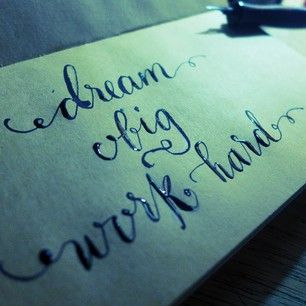 dream
big
work hard